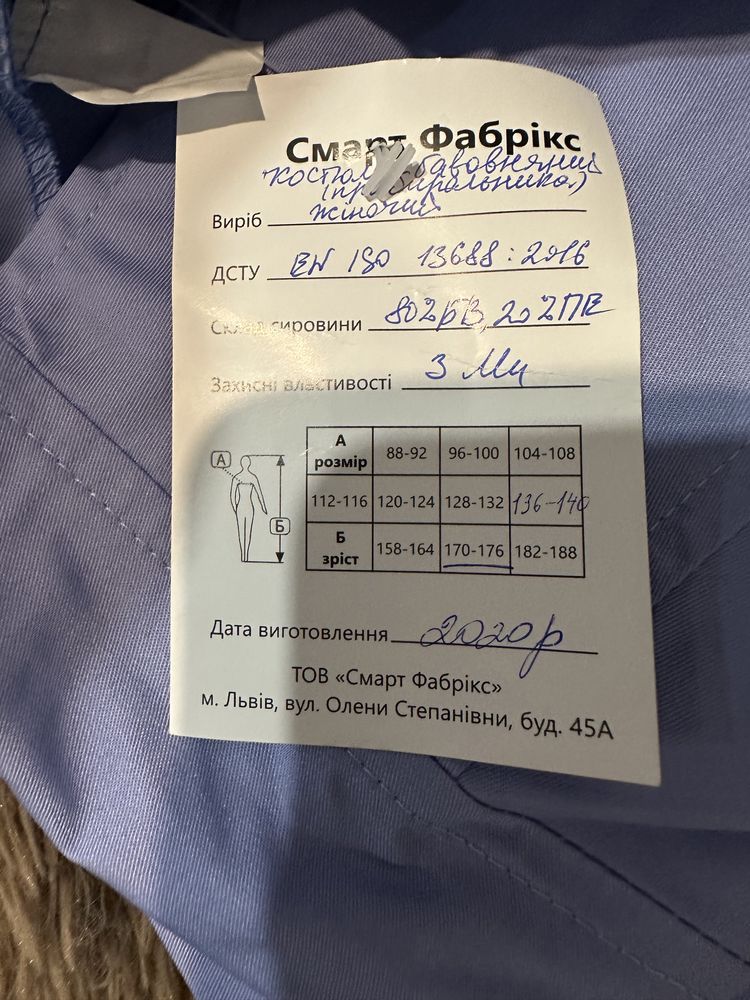 Смарт Фабрікс
костюм бавовняний
(прибиральника)
Виріб жіночий
ДСТУ EN ISO 13688:2016
Склад сировини 80%БВ, 20%ПЕ
Захисні властивості З Ми
А
Б
А розмір 88-92 96-100 104-108
112-116 120-124 128-132 136-140
Б зріст 158-164 170-176 182-188
Дата виготовлення 2020р
ТОВ «Смарт Фабрікс»
м. Львів, вул. Олени Степанівни, буд. 45А